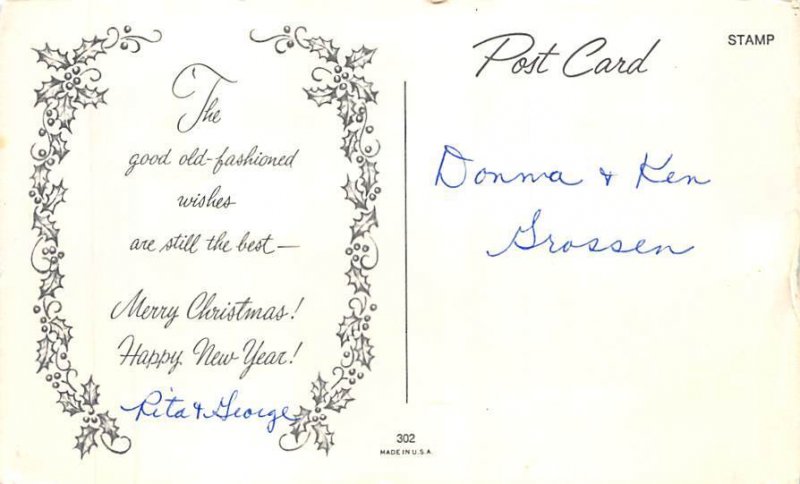 The
good old-fashioned
wishes
are still the best—
Merry Christmas!
Happy New Year!
Rita & George
Post Card
STAMP
Donna & Ken
Grossen
302
MADE IN U.S.A.